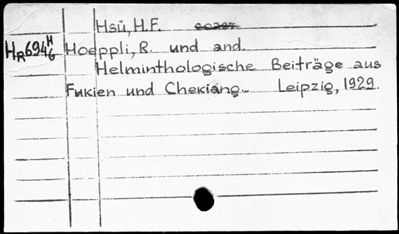 Hsü, H.F. coaut
HR694 H/6 Hoeppli, R. und and.
Helminthologische Beiträge aus
Fukien und Chekiang. Leipzig, 1929.